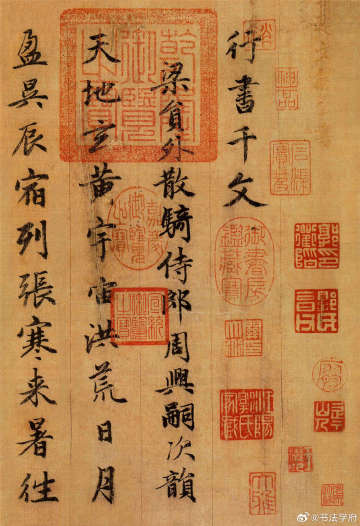 行書千文
梁貟外散騎侍郎周興嗣次韻
天地玄黄宇宙洪荒日月
盈昃辰宿列張寒来暑往
神品
御書房鑑藏寶
@书法学府